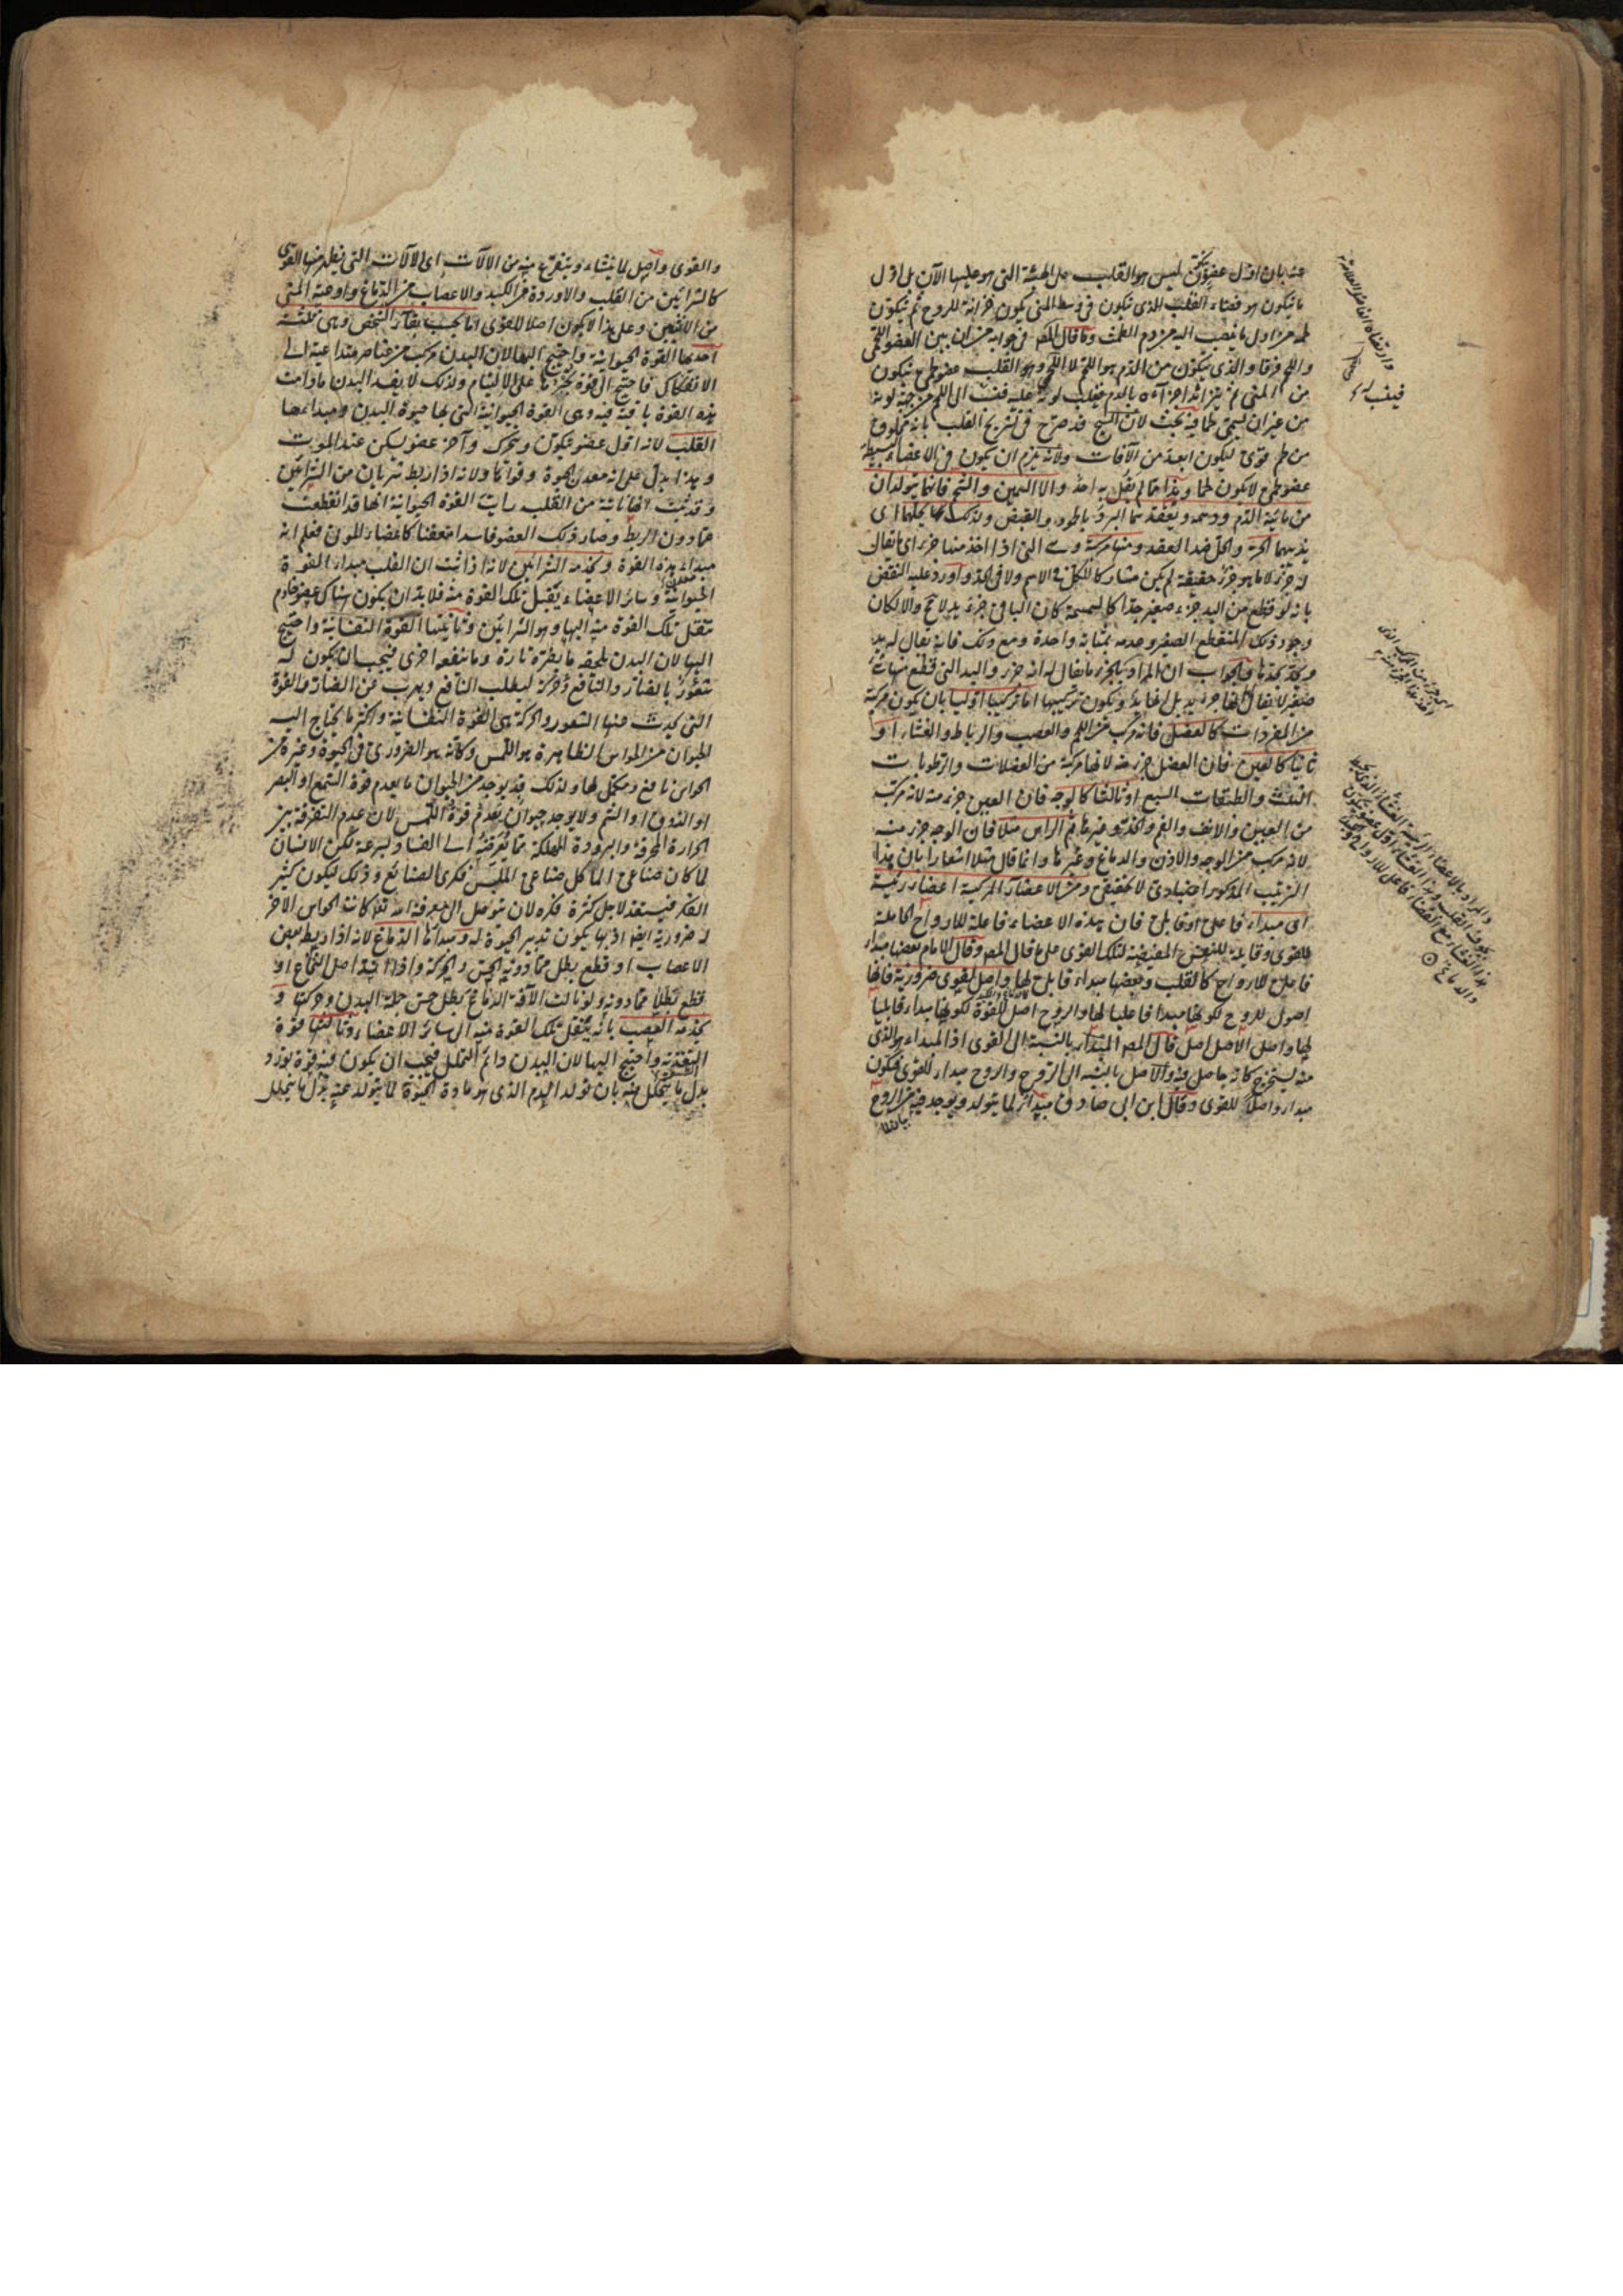 عنه بان اول عضو يتكون ليس هو القلب على الهيئة التى هو عليها الآن بل اول
ما يتكون هو فضاء القلب الذى يكون فى وسط المنى يكون خزانة للروح ثم يتكون
لحمه من اول ما ينصب اليه من دم الطمث وما قال المص فى جوابه من ان بين العضو اللحمى
واللحم فرقا والذى يتكون من الدم هو اللحم لا اللحمى وهو القلب عضو لحمى يتكون
من المنى ثم اجزاءه بالدم فيغلب لونه عليه فينسب الى اللحم من جهة لونه
من غير ان يسمى لحما فيه بحث لان الشيخ قد صرح فى تشريح القلب بانه مخلوق
من لحم قوى ليكون ابعد من الآفات ولانه يلزم ان يكون فى الاعضاء البسيطة
عضو لحمى لا يكون لحما وهذا مما لم يقل به احد والا السمين والشحم فانهما يتولدان
من مائية الدم ودسمه ويعقدهما البرد والقبض ولذلك يحلهما اى
يذيبهما الحر والحل ضد العقد ومنها مركبة وهى التى اذا اخذ منها جزء اى ما يقال
له جزء لا ما هو جزء حقيقة لم يكن مشاركا للكل فى الاسم ولا فى الحد واورد عليه النقض
بانه لو قطع من اليد جزء صغير جدا كالسمسمة كان الباقى جزء يد لا مح والا لكان
وجود ذلك المنقطع الصغير وعدمه بمثابة واحدة ومع ذلك فانه يقال له يد
وحده حدها والجواب ان المراد بالجزء ما يقال له انه جزء واليد التى قطع منها شئ
صغير لا يقال لها جزء يد بل لها يد ويكون تركيبها اما تركيبا اوليا بان يكون مركبة
من المفردات كالعضل فانه مركب من اللحم والعصب والرباط والغشاء او
ثانيا كالعين فان العضل جزء منه لانها مركبة من العضلات والرطوبات
الثلث والطبقات السبع او ثالثا كالوجه فان العين جزء منه لانه مركبة
من العين والانف والفم والخد وغيرها ثم الراس مثلا فان الوجه جزء منه
لانه مركب من الوجه والاذن والدماغ وغيرها وانما قال مثلا اشعارا بان هذا
الترتيب المذكور اعتبارى لا حقيقى ومن الاعضاء المركبة اعضاء رئيسة
اى مبداء فاعلى او قابلى فان هذه الاعضاء فاعلة للارواح الحاملة
للقوى وقابلة للنفس المفيضة لتلك القوى على ما قال المص وقال الامام بعضها مبداء
فاعلى للارواح كالقلب وبعضها مبداء قابلى لها واصل لقوى ضرورية فانها
اصول للروح لكونها مبدا فاعليا لها والروح اصل للقوة لكونها مبداء قابليا
لها واصل الاصل اصل قال المص المبداء بالنسبة الى القوى اذ المبداء هو الذى
منه يستخرج كانه حاصل فيه والاصل بالنسبة الى الروح والروح مبداء للقوى فيكون
مبداء واصلا للقوى وقال ابن ابى صادق مبداء لما يتولد ويوجد فيه من الروح
فيه نظر
والمراد بالاعضاء الرئيسة
والدماغ
والقوى واصل لما ينشاء ويتفرع منه من الالات اى الالات التى يظهر منها القوى
كالشرائين من القلب والاوردة من الكبد والاعصاب من الدماغ واوعية المنى
من الانثيين وعلى هذا لا يكون اصلا للقوى اما بحسب بقاء الشخص وهى ثلثة
احدها القوة الحيوانية واحتيج اليها لان البدن مركب من عناصر متداعية الى
الانفكاك فاحتيج الى قوة تجبرها على الالتيام ولذلك لا يفسد البدن ما دامت
هذه القوة باقية فيه وهى القوة الحيوانية التى بها حيوة البدن ومبداءها
القلب لانه اول عضو يتكون ويتحرك وآخر عضو يسكن عند الموت
وهذا يدل على انه معدن الحيوة وقوامها ولانه اذا ربط شريان من الشرائين
وقد ثبت انها ناتية من القلب رايت القوة الحيوانية انها قد انقطعت
عما دون الربط وصار ذلك العضو فاسدا متعفنا كاعضاء الموتى فعلم انه
مبداء هذه القوة ويخدمه الشرائين لانه اذا ثبت ان القلب مبداء القوة
الحيوانية وسائر الاعضاء يقبل تلك القوة منه فلا بد ان يكون هناك عضو خادم
ينقل تلك القوة منه اليها وهو الشرائين وثانيتها القوة النفسانية واحتيج
اليها لان البدن يلحقه ما يضره تارة وما ينفعه اخرى فيجب ان يكون له
شعور بالضار والنافع وحركة ليطلب النافع ويهرب عن الضار والقوة
التى يحدث منها الشعور والحركة هى القوة النفسانية واكثر ما يحتاج اليه
الحيوان من الحواس الظاهرة هو اللمس وكانه هو الضرورى فى الحيوة وغيره من
الحواس نافع ومكمل لها ولذلك قد يوجد من الحيوان ما يعدم قوة السمع او البصر
او الذوق او الشم ولا يوجد حيوان يعدم قوة اللمس لان عدم التفرقة بين
الحرارة المحرقة والبرودة المهلكة مما يعرضه الى الفساد بسرعة لكن الانسان
لما كان صناعى الماكل صناعى الملبس فكرى الصنائع وذلك ليكون كثير
الفكر فيستعد لاجل كثرة فكره لان يتوصل الى معرفة الله تعا كانت الحواس الاخر
له ضرورية ايضا اذ بها يكون تدبير الحيوة له ومبداءها الدماغ لانه اذا ربط بعض
الاعصاب او قطع بطل مما دونه الحس والحركة واذا اصل النخاع او
قطع بطلا مما دونه ولو نالت الآفة الدماغ بطل حس جملة البدن وحركتها و
يخدمه العصب بانه ينقل تلك القوة منه الى سائر الاعضاء وثالثتها قوة
التغذية واحتيج اليها لان البدن دائم التحلل فيجب ان يكون فيه قوة يورد
بدل ما يتحلل منه بان تولد الدم الذى هو مادة الحيوة لما يتولد عنه بدل ما يتحلل